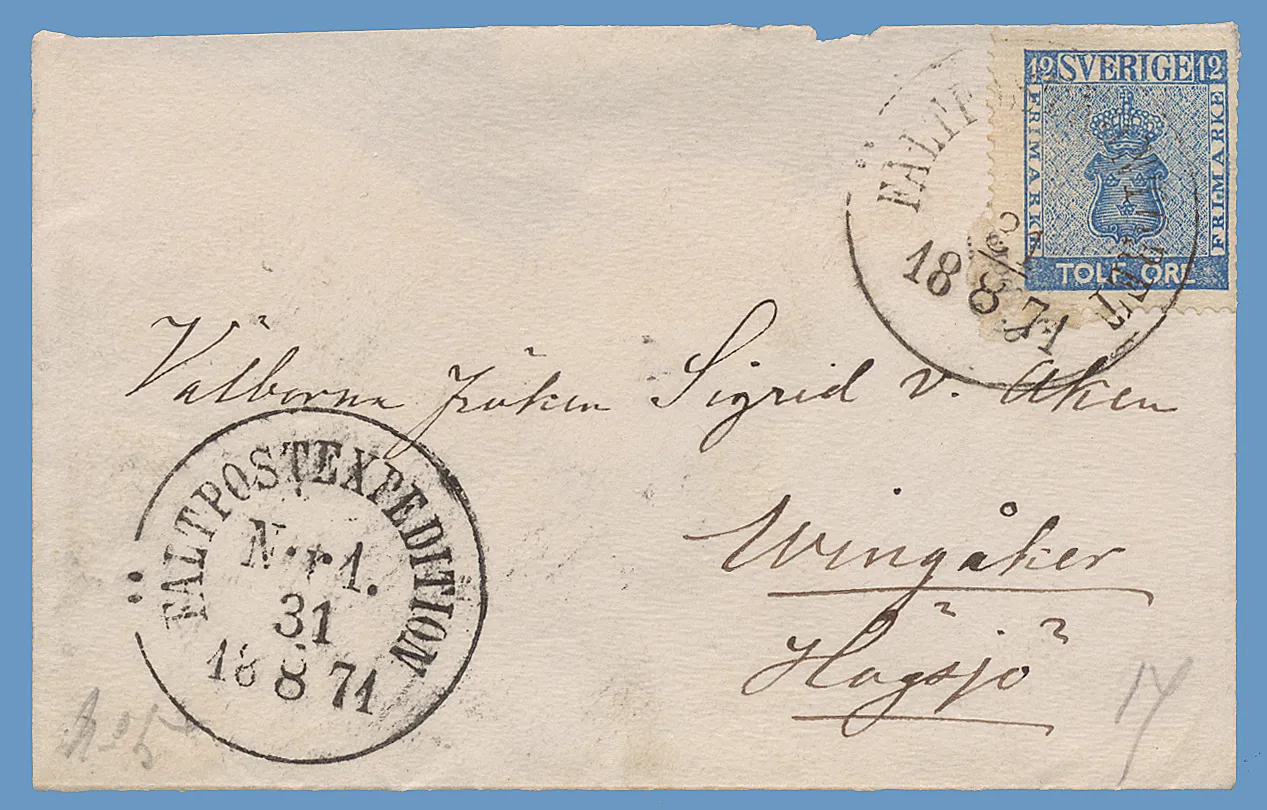 12 SVERIGE 12
FRIMARKE
FRIMARKE
TOLF ÖRE
31
18 8 71
Välborne fröken Sigrid v. Aken
Wingåker
Högsjö
FÄLTPOSTEXPEDITION
N:r 1.
31
18 8 71